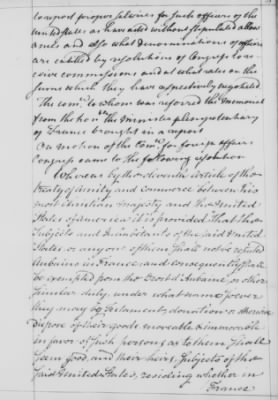 to report proper salaries for such officers of the
United States as have acted without stipulated allow
ances and also what denominations of officers
are entitled by resolutions of Congress to re
ceive commissions and at what rates on the
sums which they have respectively negotiated
The com.ee to whom was referred the memorial
from the hon.ble the minister plenipotentiary
of France brought in a report
On motion of the Com.ee for foreign affairs
Congress came to the following resolution
Whereas by the eleventh article of the
treaty of amity and commerce between his
most christian majesty and the United
States of america it is provided That the
subjects and inhabitants of the said United
States or any one of them shall not be reputed
Aubains in France and consequently shall
be exempted from the Droit d'Aubaine or other
similar duty, under what name soever
they may by testament, donation or otherwise
dispose of their goods moveable & immoveable
in favor of such persons as to them shall
seem good, and their heirs, subjects of the
said United States, residing whether in
France